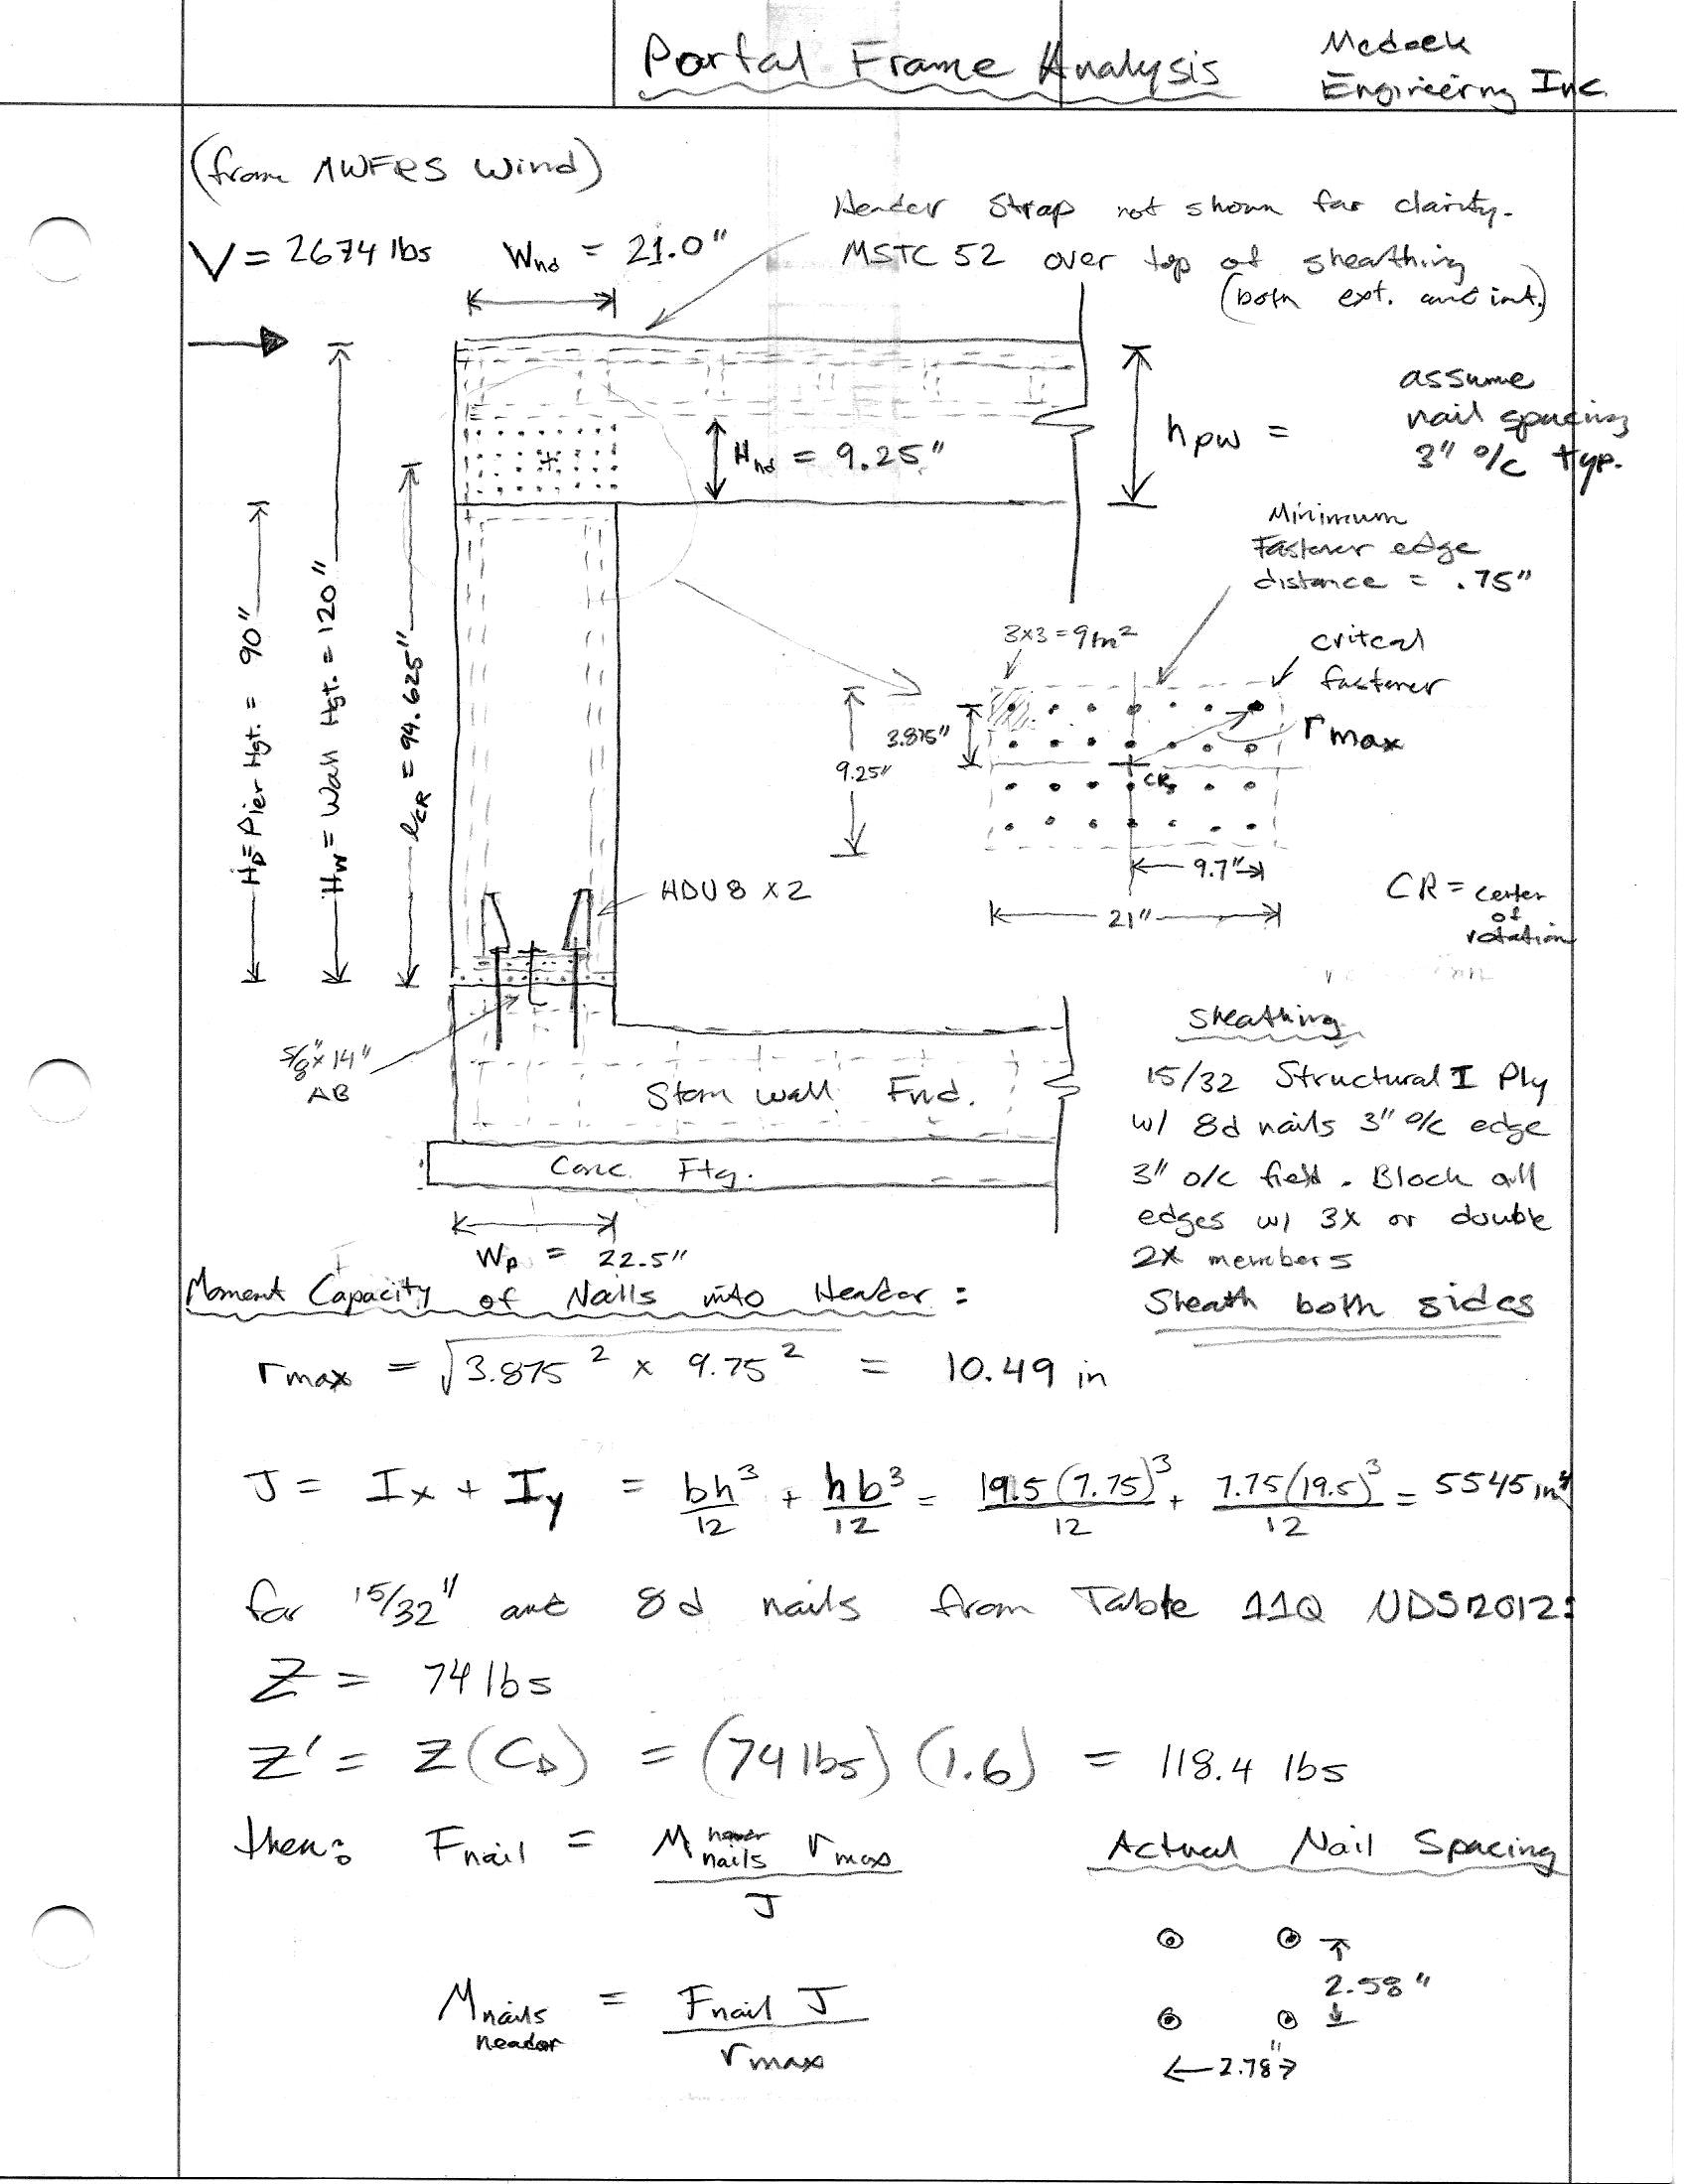 Portal Frame Analysis
Medeek
Engineering Inc.
(from MWFRS Wind)
V = 2674 lbs
Wnd = 21.0"
Header Strap not shown for clarity.
MSTC 52 over top of sheathing
(both ext. and int.)
Hnd = 9.25"
hpw =
assume
nail spacing
3" o/c typ.
Minimum
Fastener edge
distance = .75"
Hp = Pier Hgt. = 90"
Hw = Wall Hgt. = 120"
lCR = 94.625"
3x3 = 9in²
critcal
fastener
rmax
3.875"
9.25"
CR
9.7"
21"
CR = center
of
rotation
HDU8 x 2
5/8" x 14"
AB
Stem wall Fnd.
Conc. Ftg.
Wp = 22.5"
Sheathing
15/32 Structural I Ply
w/ 8d nails 3" o/c edge
3" o/c field. Block all
edges w/ 3x or double
2x members
Sheath both sides
Moment Capacity of Nails into Header:
rmax = √3.875² x 9.75² = 10.49 in
J = Ix + Iy = bh³/12 + hb³/12 = 19.5(7.75)³/12 + 7.75(19.5)³/12 = 5545 in⁴
for 15/32" and 8d nails from Table 11Q NDS2012:
Z = 74 lbs
Z' = Z(CD) = (74 lbs)(1.6) = 118.4 lbs
then: Fnail = Mnails header rmax / J
Mnails header = Fnail J / rmax
Actual Nail Spacing
2.58"
2.78"